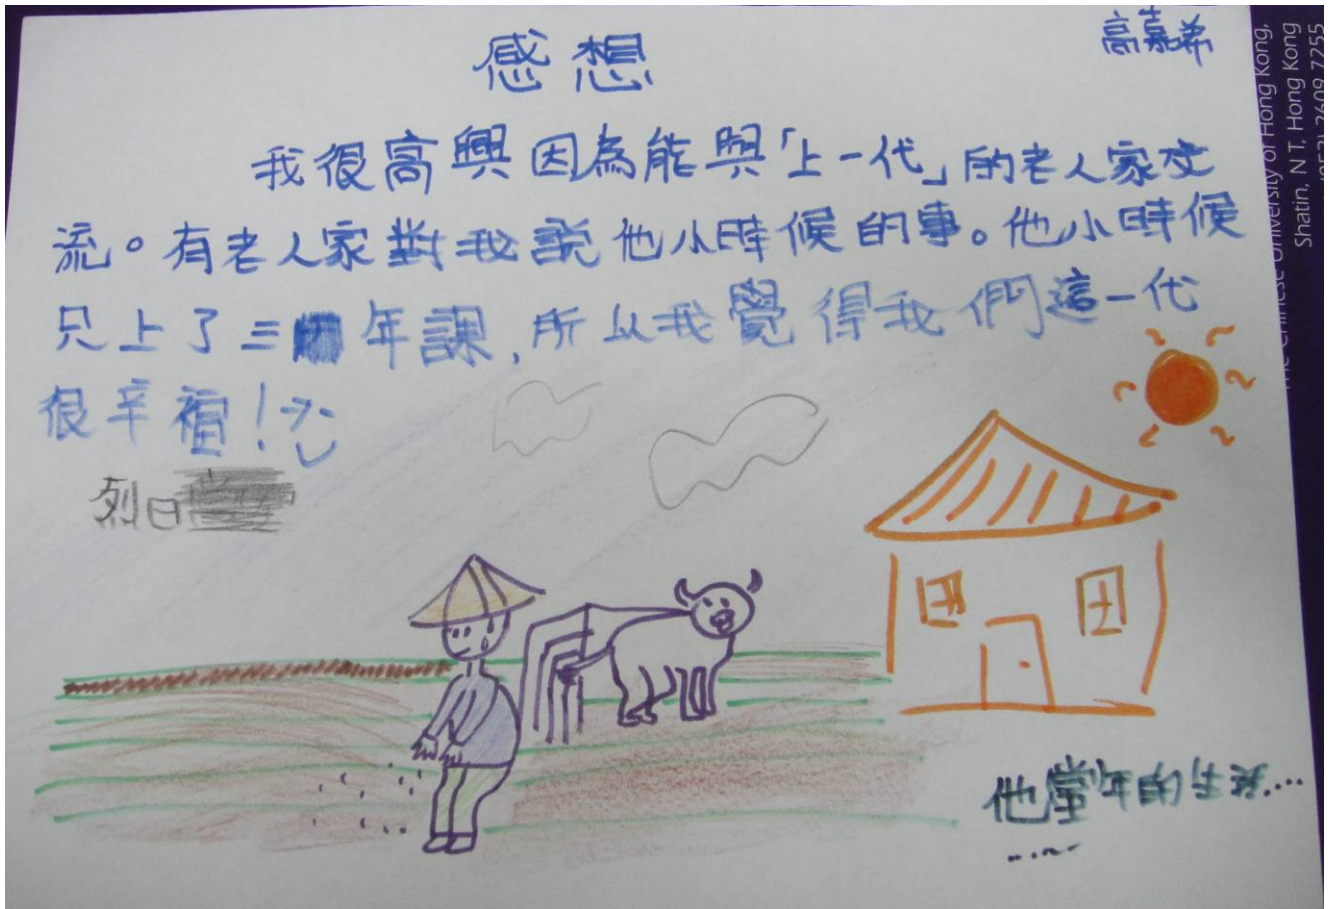 感想
高嘉希
我很高興因為能與「上一代」的老人家交
流。有老人家對我說他小時候的事。他小時候
只上了三年課,所以我覺得我們這一代
很辛福!
烈日
他當年的生活...
......
The Chinese University of Hong Kong,
Shatin, N T. Hong Kong
(852) 2609 7255